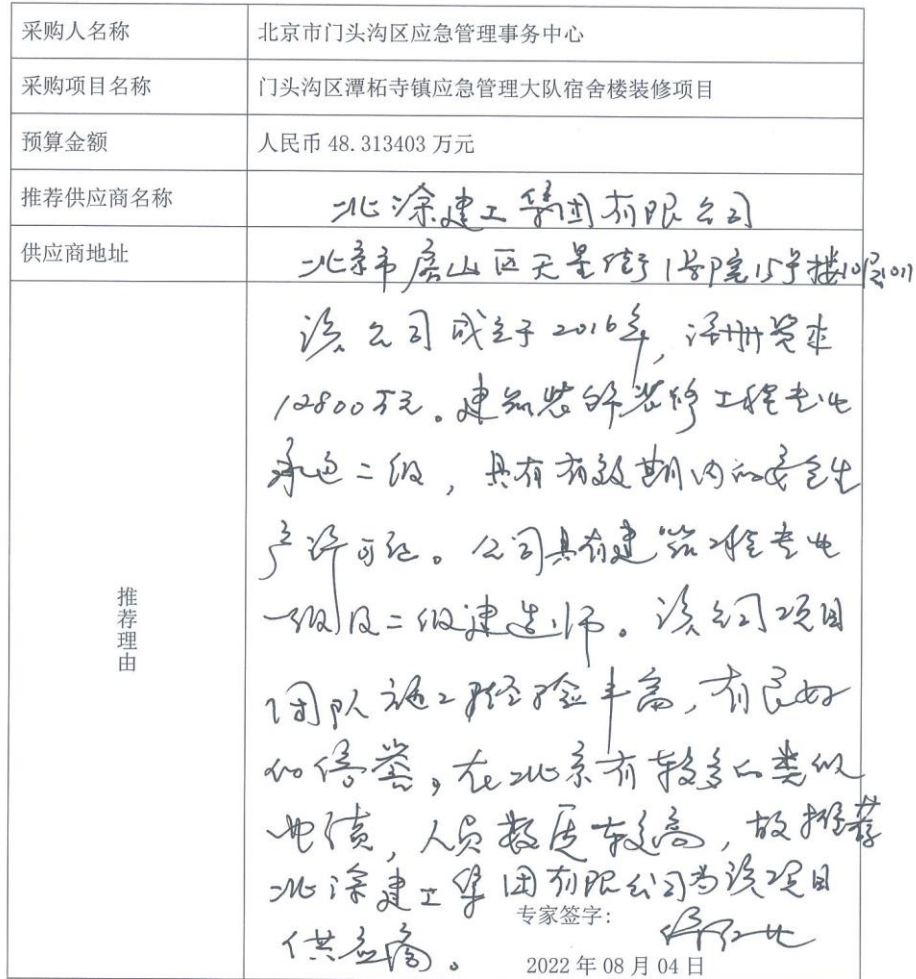 采购人名称 北京市门头沟区应急管理事务中心
采购项目名称 门头沟区潭柘寺镇应急管理大队宿舍楼装修项目
预算金额 人民币 48.313403 万元
推荐供应商名称 北涂建工集团有限公司
供应商地址 北京市房山区天星街1号院15号楼10层1011
推荐理由
该公司成立于2016年,注册资本
12800万元。建筑装饰装修工程专业
承包二级,具有有效期内的安全生
产许可证。公司具有建筑工程专业
一级及二级建造师。该公司项目
团队施工经验丰富,有良好
的信誉,在北京有较多的类似
业绩,人员素质较高,故推荐
北涂建工集团有限公司为该项目
供应商。
专家签字:
2022 年 08 月 04 日